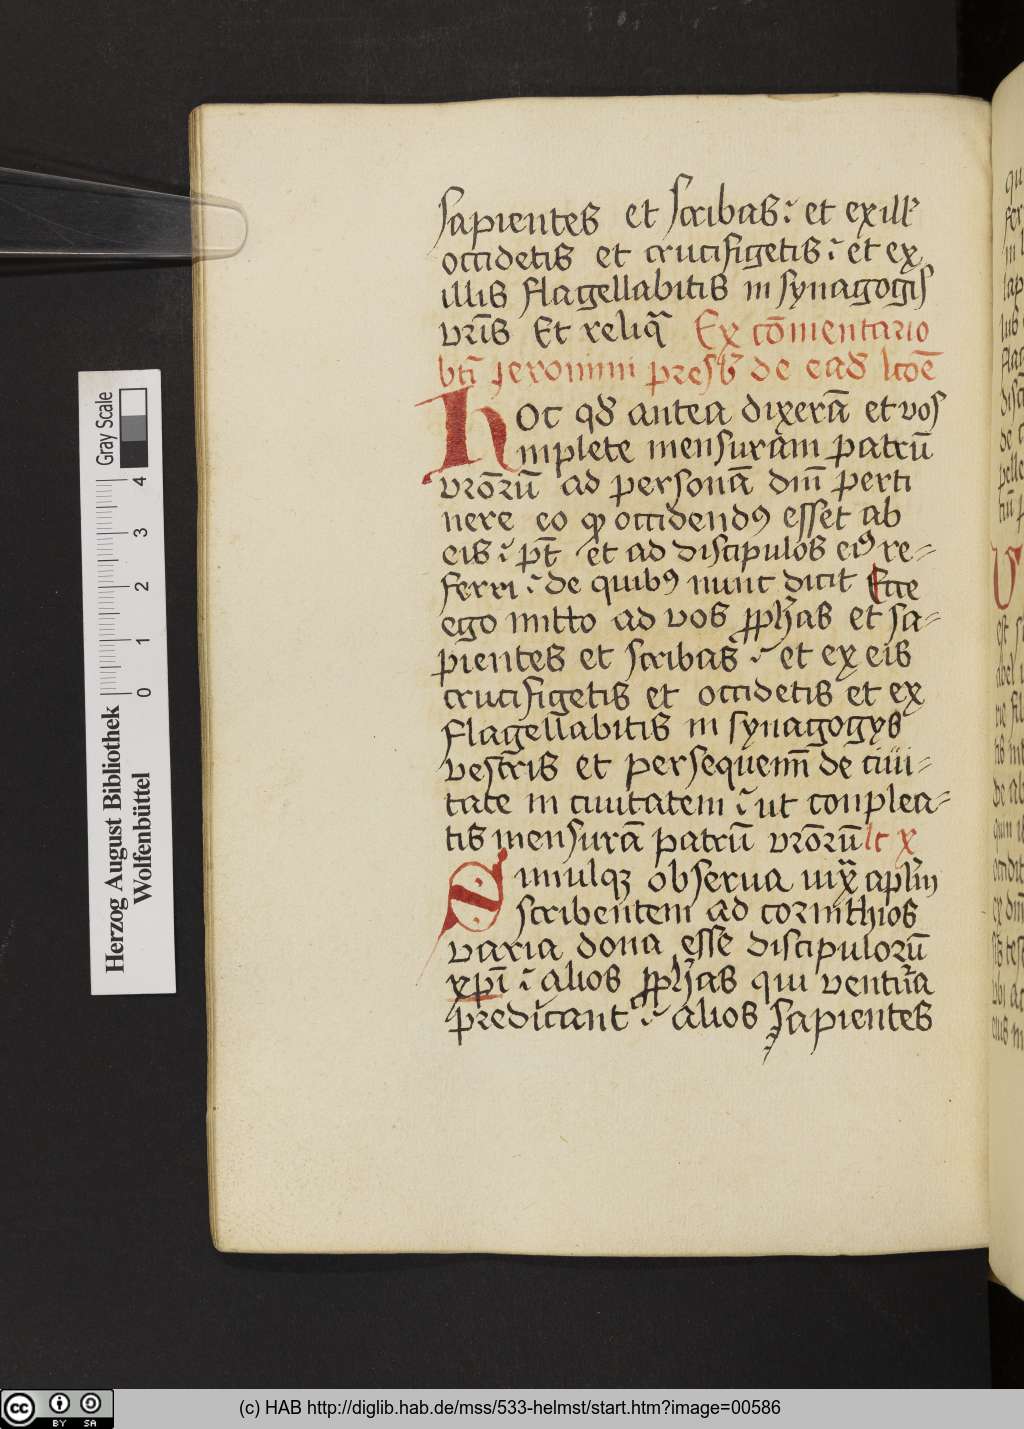 sapientes et scribas: et ex ill'
occidetis et crucifigetis: et ex
illis flagellabitis in synagogis
vrīs Et reliqā Ex cōmentario
btī jeronimi presb' de ead' lctōe
Hoc qd' antea dixerā et vos
implete mensuram patrū
vrōrū ad personā dnī perti
nere eo qꝫ occidendꝰ esset ab
eis: pt̄ et ad discipulos eiꝰ re=
ferri: de quibꝰ nunc dicit Ecce
ego mitto ad vos ꝓph'as et sa=
pientes et scribas: et ex eis
crucifigetis et occidetis et ex
flagellabitis in synagogys
vestris et persequemī de ciui=
tate in ciuitatem: ut conplea=
tis mensurā patrū vrōrū lc x
Simulqꝫ obserua iuxͣ aplm̄
scribentem ad corinthios
varia dona esse discipulorū
xpī: alios ꝓph'as qui ventura
predicant: alios sapientes
Gray Scale
0 1 2 3 4
Herzog August Bibliothek
Wolfenbüttel
cc BY SA
(c) HAB http://diglib.hab.de/mss/533-helmst/start.htm?image=00586